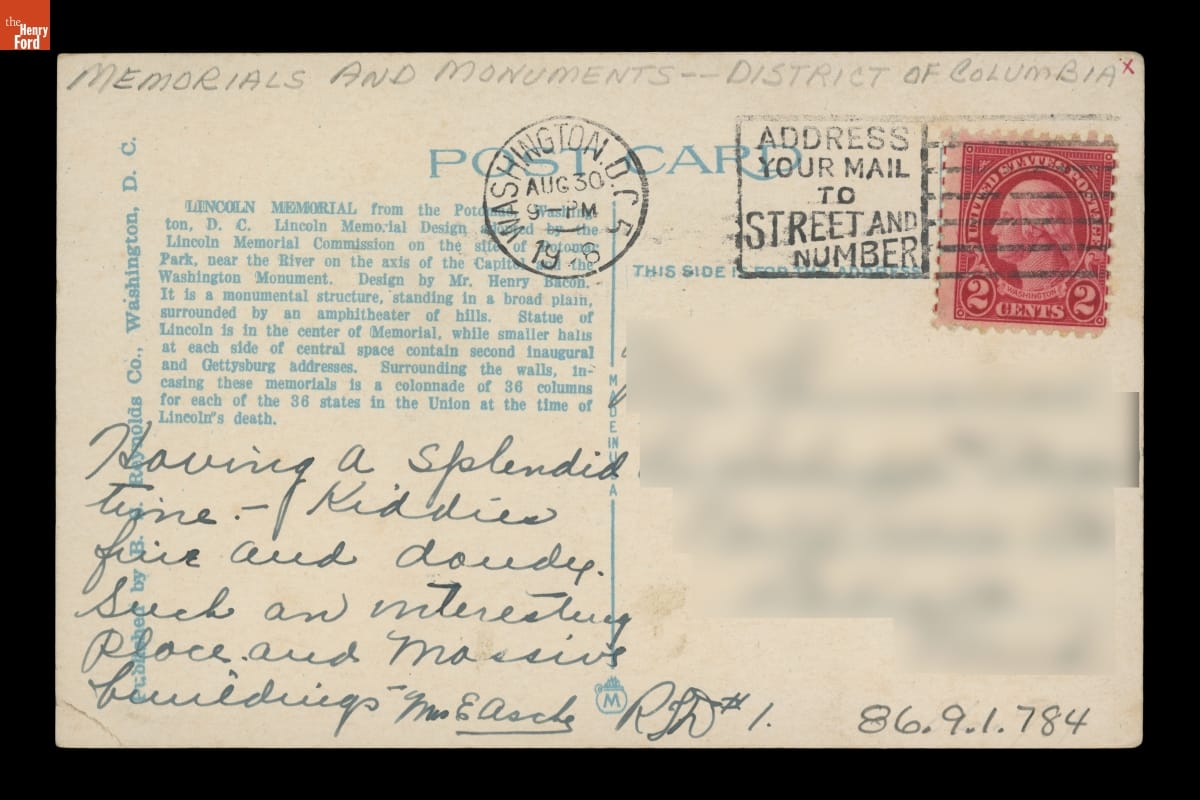 the
Henry
Ford
MEMORIALS AND MONUMENTS--DISTRICT OF COLUMBIA x
POST CARD
WASHINGTON, D.C. 5
AUG 30
9-PM
ADDRESS
YOUR MAIL
TO
STREET AND
NUMBER
UNITED STATES POSTAGE
WASHINGTON
2 CENTS 2
THIS SIDE IS FOR THE ADDRESS
LINCOLN MEMORIAL from the Potomac, Washing-
ton, D. C. Lincoln Memorial Design adopted by the
Lincoln Memorial Commission on the site of Potomac
Park, near the River on the axis of the Capitol and the
Washington Monument. Design by Mr. Henry Bacon.
It is a monumental structure, standing in a broad plain,
surrounded by an amphitheater of hills. Statue of
Lincoln is in the center of Memorial, while smaller halls
at each side of central space contain second inaugural
and Gettysburg addresses. Surrounding the walls, in-
casing these memorials is a colonnade of 36 columns
for each of the 36 states in the Union at the time of
Lincoln's death.
Published by B. Reynolds Co., Washington, D. C.
MADE IN USA
Having a splendid
time. - Kiddies
fine and dandy.
Such an interesting
place and massive
buildings -
Mrs E Asche
M
RFD #1.
86.9.1.784